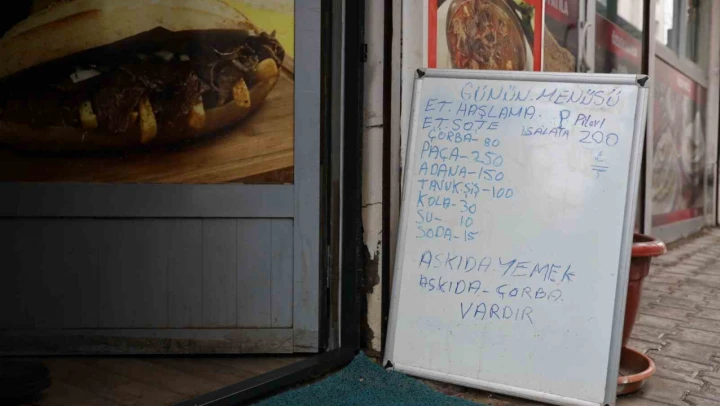 GÜNÜN MENÜSÜ
ET. HAŞLAMA. Pilavl
ET. SOTE SALATA 200
ÇORBA- 80
PAÇA- 250
ADANA- 150
TAVUK.ŞİŞ- 100
KOLA- 30
SU- 10
SODA- 15
ASKIDA. YEMEK
ASKIDA- ÇORBA.
VARDIR